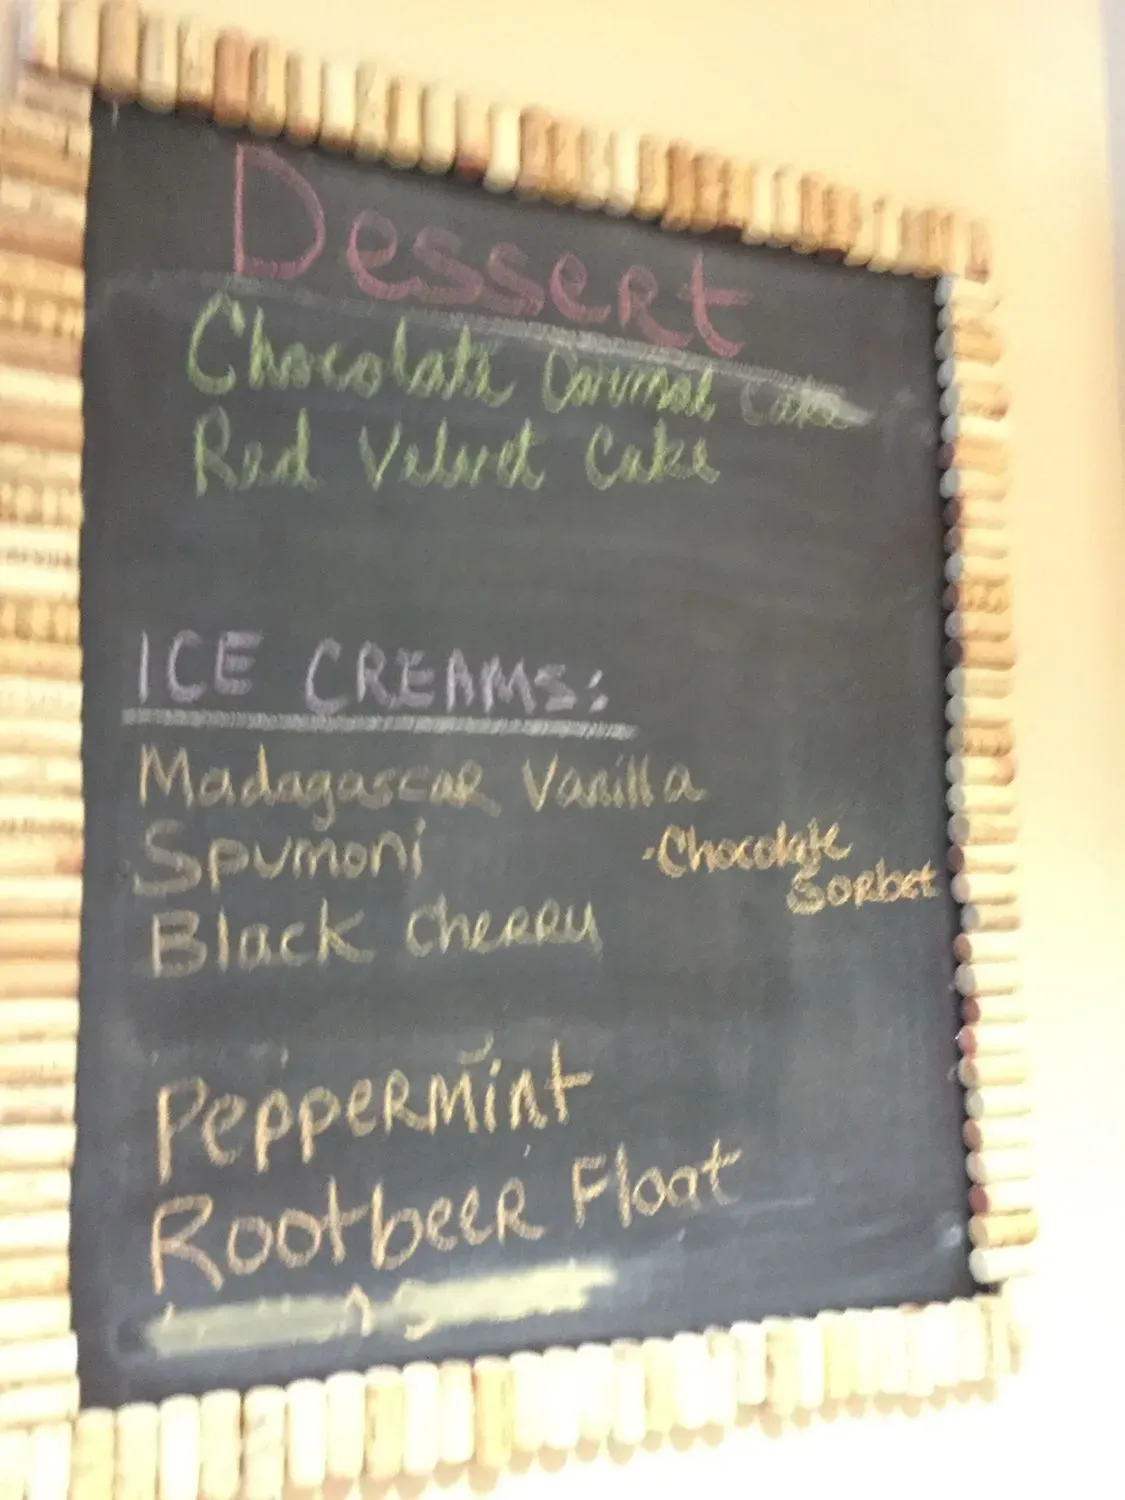 Dessert
Chocolate Carmel Cake
Red Velvet Cake
ICE CREAMS:
Madagascar Vanilla
Spumoni
Black Cherry
·Chocolate
Sorbet
Peppermint
Rootbeer Float